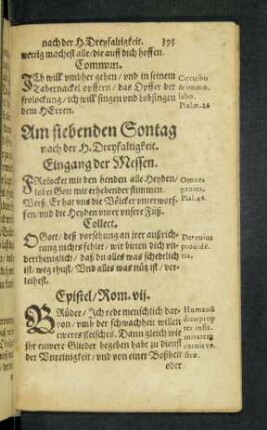 nach der H. Dreyfaltigkeit. 395
wenig machest alle / die auff dich hoffen.
Commun.
ICh will vmbher gehen / vnd in seinem
Tabernackel opffern / das Opffer der
frolockung / ich will singen vnd lobsingen
dem HErren.
Circuibo
& immo
labo.
Psalm. 26
Am siebenden Sontag
nach der H. Dreyfaltigkeit.
Eingang der Messen.
FRolocket mit den henden alle Heyden /
lobet Gott mit erhebender stimmen.
Verß. Er hat vns die Völcker vnterworf-
fen / vnd die Heyden vnter vnsere Füß.
Omnes
gentes.
Psal. 46.
Collect.
O Gott / deß vorsehung an jrer außrich-
tung nichts fehlet / wir bitten dich vn-
dertheniglich / daß du alles was schedlich
ist / weg thust / Vnd alles was nütz ist / ver-
leihest.
Deus cuius
prouidē-
tia.
Epistel / Rom. vij.
BRüder / Ich rede menschlich dar-
von / vmb der schwachheit willen
eweres fleisches. Dann gleich wie
jhr ewere Glieder begeben habt zu dienst
der Vnreinigkeit / vnd von einer Boßheit
oder
Humanū
dico prop
ter infir-
mitatem
carnis ve-
stræ.